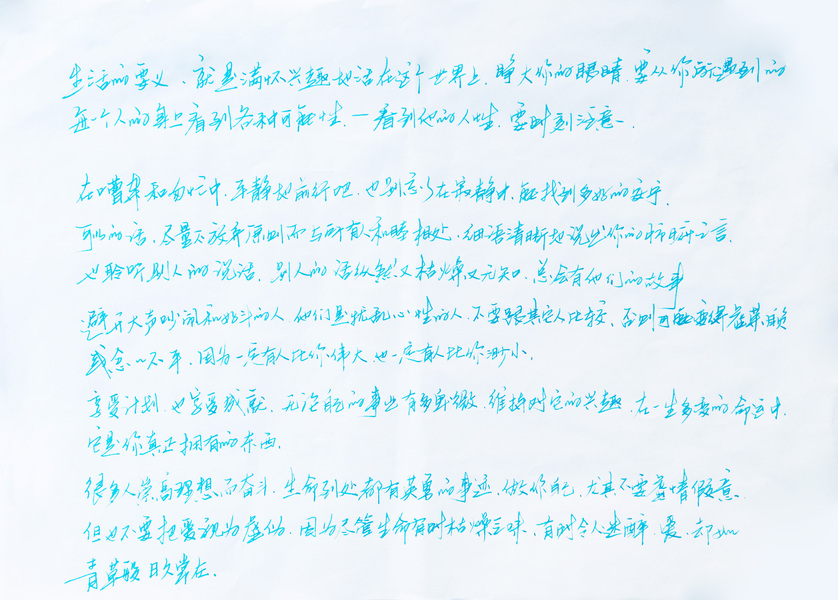 生活的要义、就是满怀兴趣地活在这个世界上,睁大你的眼睛,要从你所遇到的
每一个人的身上看到各种可能性,一看到他的人性,要时刻注意一.
在嘈杂和匆忙中,平静地前行吧,也别忘了在寂静中,能找到多好的安宁.
可以的话,尽量不放弃原则而与所有人和睦相处,细语清晰地说出你的
也聆听别人的说话,别人的话纵然又枯燥又无知,总会有他们的故事
避开大声吵闹和好斗的人,他们是扰乱心性的人,不要跟其它人比较,否则可能变得
或念一不平,因为一定有人比你伟大也一定有人比你渺小.
享受计划,也享受成就,无论自己的事业有多卑微,维持对它的兴趣,在一生多变的命运中,
它是你真正拥有的东西.
很多人崇高理想而奋斗,生命到处都有英勇的事迹,做你自己,尤其不要虚情假意
但也不要把爱视为虚伪,因为尽管生命有时枯燥乏味,有时令人迷醉,爱,却如
青草般日久常在.